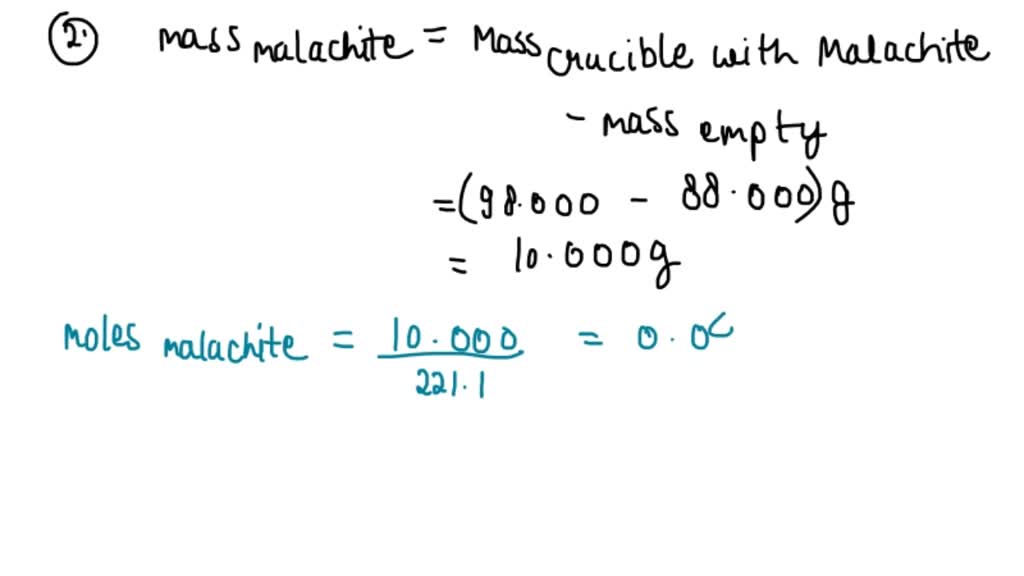 2. mass malachite = Mass crucible with Malachite
- mass empty
= (98.000 - 88.000) g
= 10.000 g
moles malachite = 10.000 = 0.0
221.1